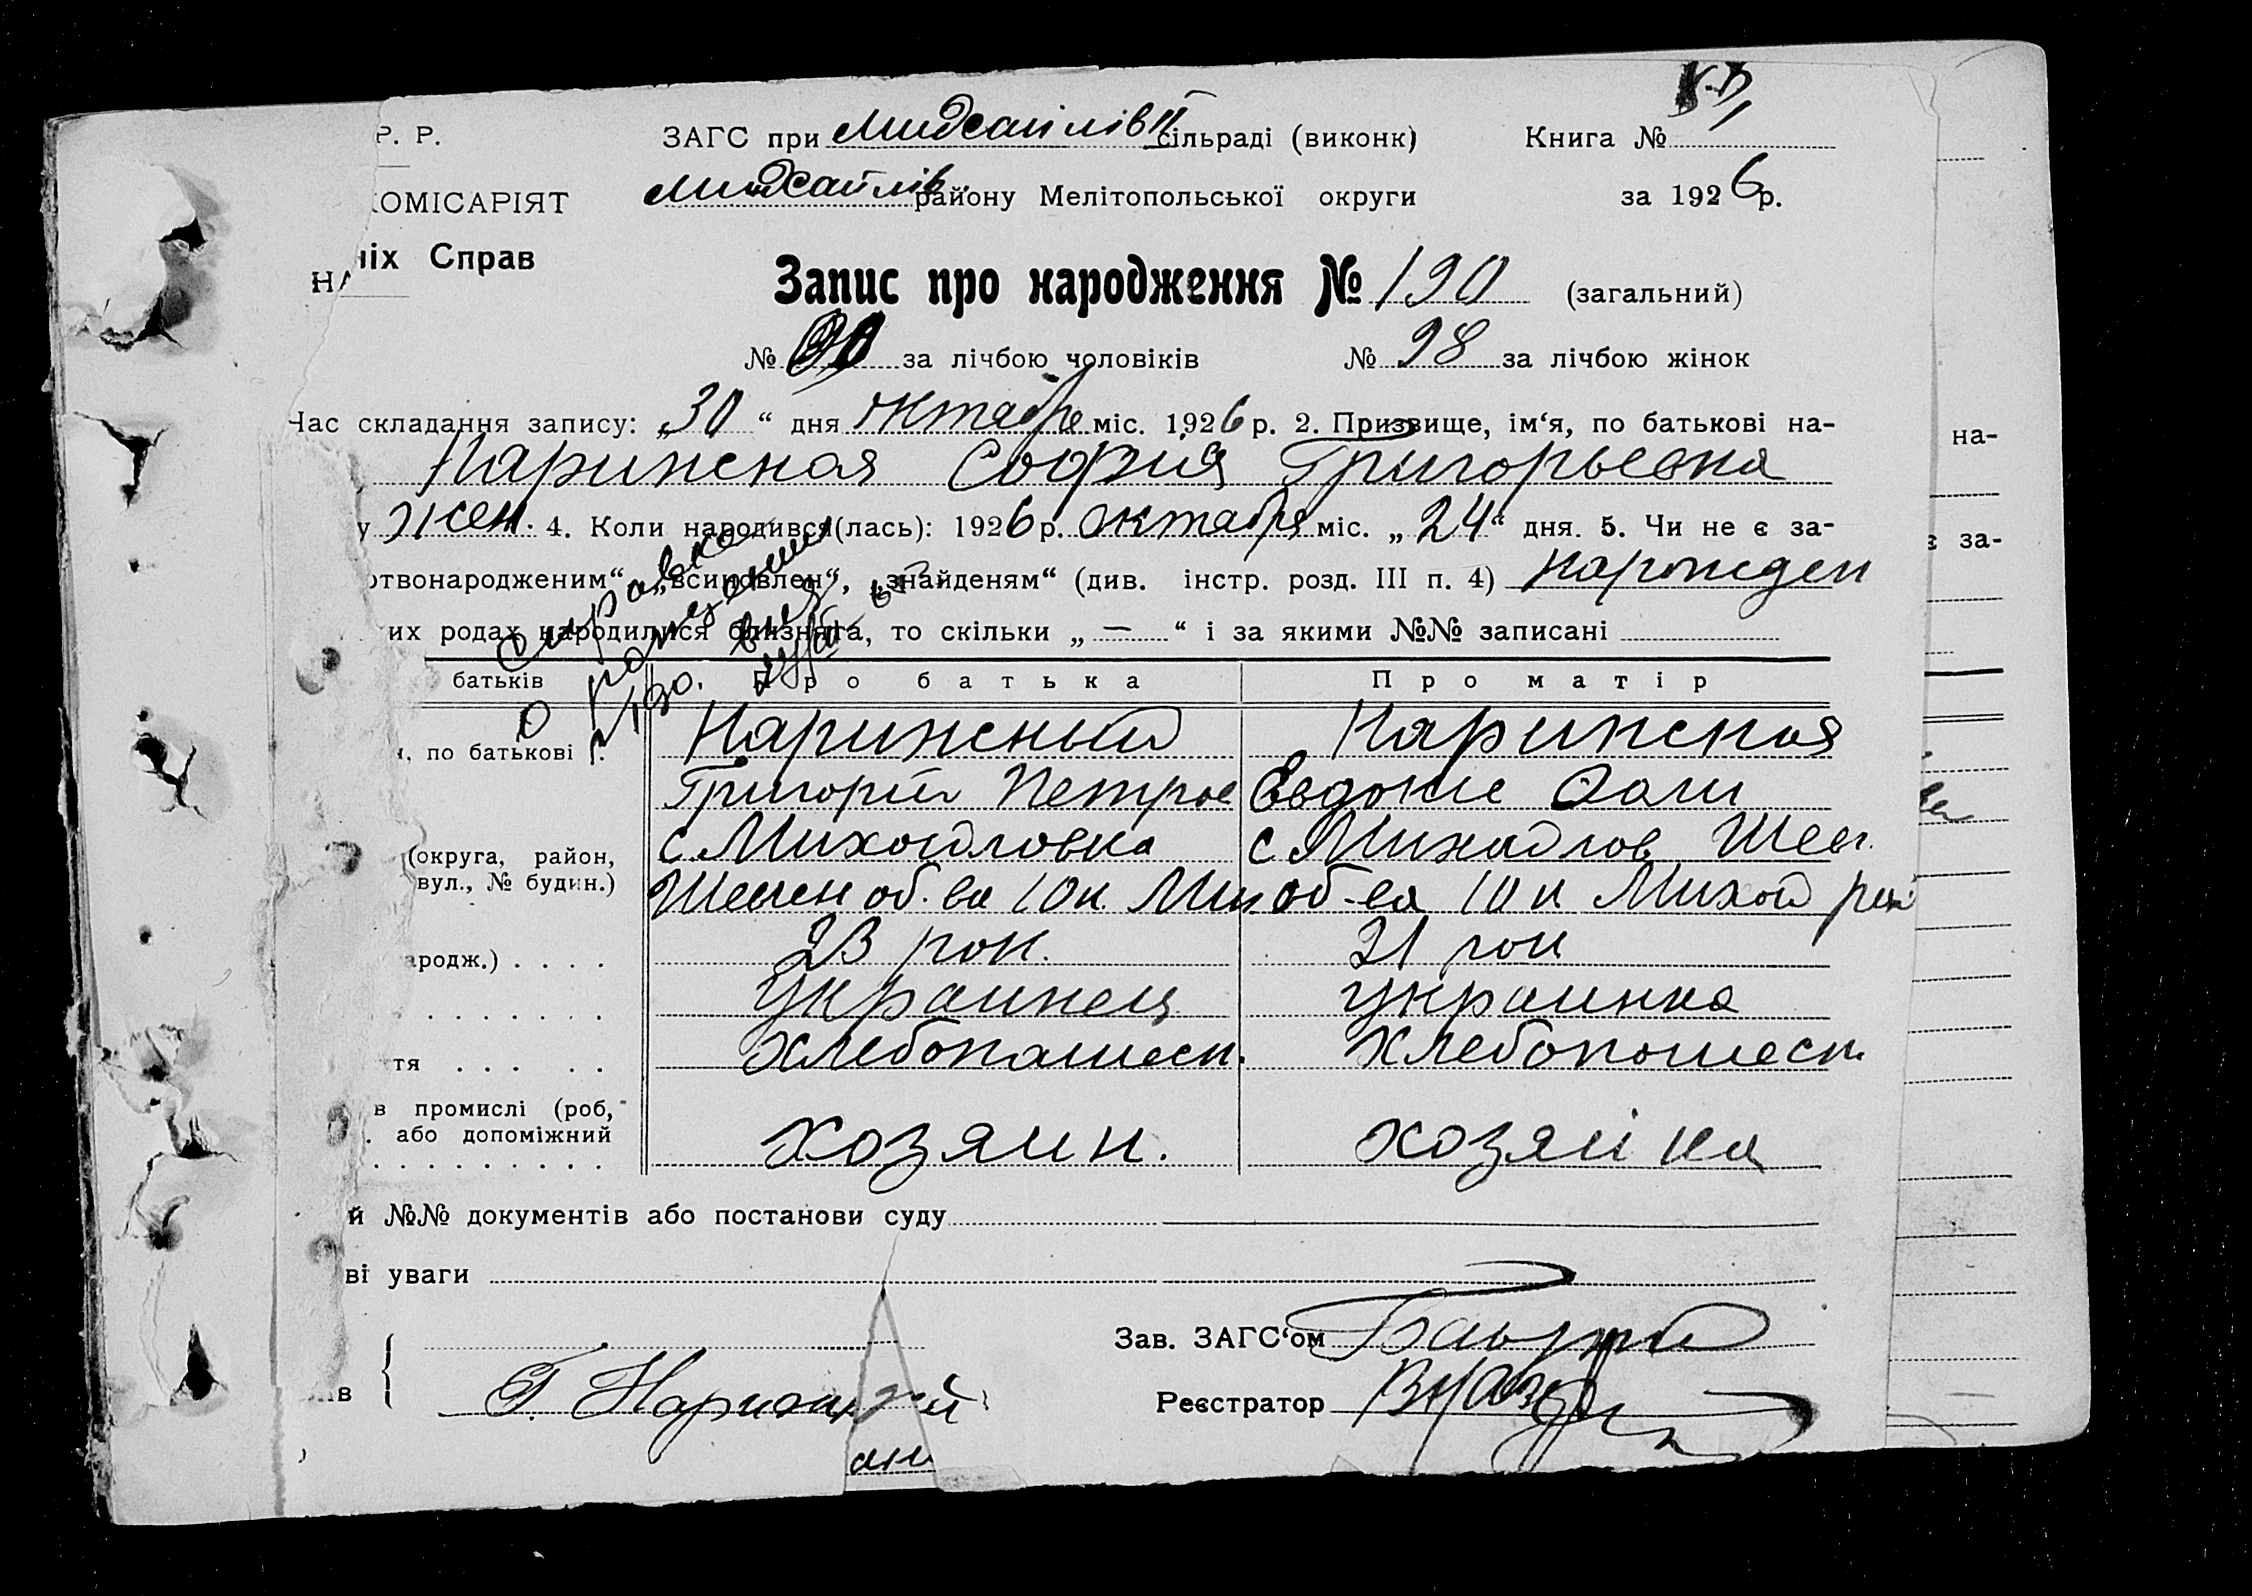 Р. Р. ЗАГС при Михайлів II сільраді (виконк) Книга №
КОМІСАРІЯТ Михайлів району Мелітопольської округи за 1926 р.
ніх Справ
НА Запис про народження № 190 (загальний)
№ за лічбою чоловіків № 98 за лічбою жінок
Час складання запису: „30“ дня октября міс. 1926 р. 2. Призвище, ім‘я, по батькові на-
Нарижная София Григорьевна
у жен. 4. Коли народився(лась): 1926 р. октября міс. „24“ дня. 5. Чи не є за-
ртвонародженим“, „всиновлен“, „знайденям“ (див. інстр. розд. III п. 4) нарожден
их родах народилися близнята, то скільки „—“ і за якими №№ записані
справка
о
батьків Про батька Про матір
н, по батькові Нарижный Нарижная
Григорий Петров Евдокие
(округа, район, с. Михайловка с Михайлов
вул., № будин.) об-ва 10 об-ва 10 Михай
ародж.) 23 рок. 21 рок
Украинец Украинка
ття Хлебопашест. Хлебопашест.
в промислі (роб,
або допоміжний хозяин. хозяйка
й №№ документів або постанови суду
ві уваги
Зав. ЗАГС‘ом
ів Г. Нарижний Реєстратор